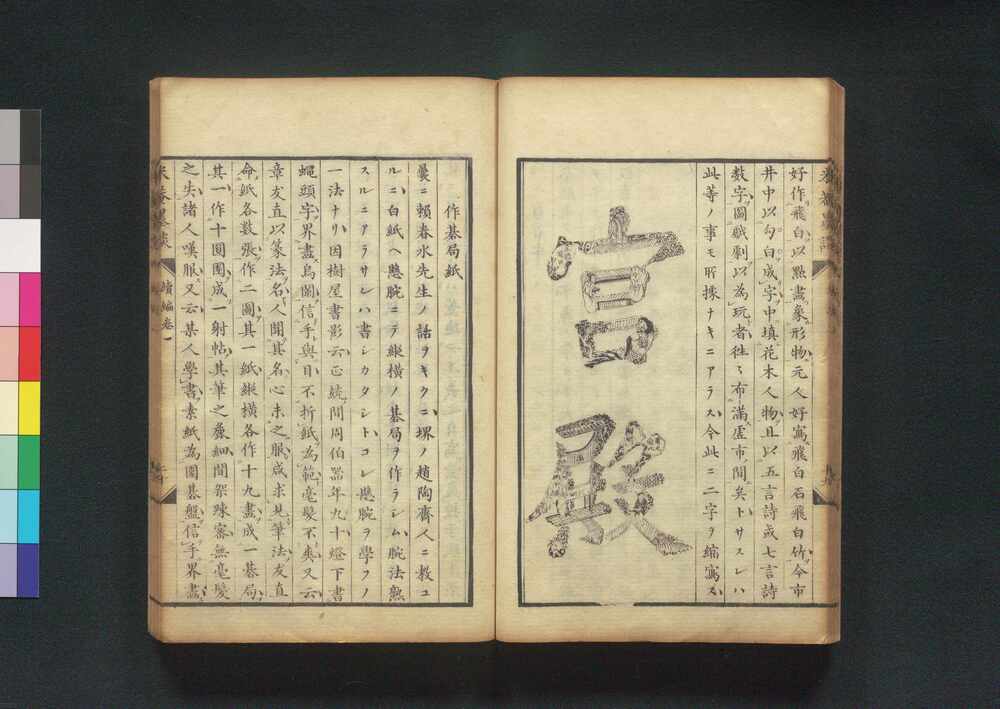 好作飛白以點畫象形物元人好寫飛白石飛白竹今市
井中以勾白成字中填花木人物且以五言詩或七言詩
数字圖賦劇以為玩者往々布滿店市間矣トサスレハ
此等ノ事モ所據ナキニアラス今此ニ二字ヲ縮寫ス
宮殿
作碁局紙
曩ニ頼春水先生ノ話ヲキクニ堺ノ趙陶齋人ニ教ユ
ルニ白紙ヘ懸腕ニテ縱横ノ碁局ヲ作ラシム腕法熟
スルニアラサレハ書シカタシトコレ懸腕ヲ學フノ
一法ナリ因樹屋書影云正統間周伯器年九十燈下書
蝿頭字界畫烏闌信手與目不折紙為範毫髮不爽又云
章友直以篆法名人聞其名心未之服咸求見筆法友直
命紙各数張作二圖其一紙縱横各作十九畫成一碁局
其一作十圓圈成一射帖其筆之麁細間架疎密無毫髮
之失諸人嘆服又云某人學書素紙為圍碁盤信手界畫
續編卷一